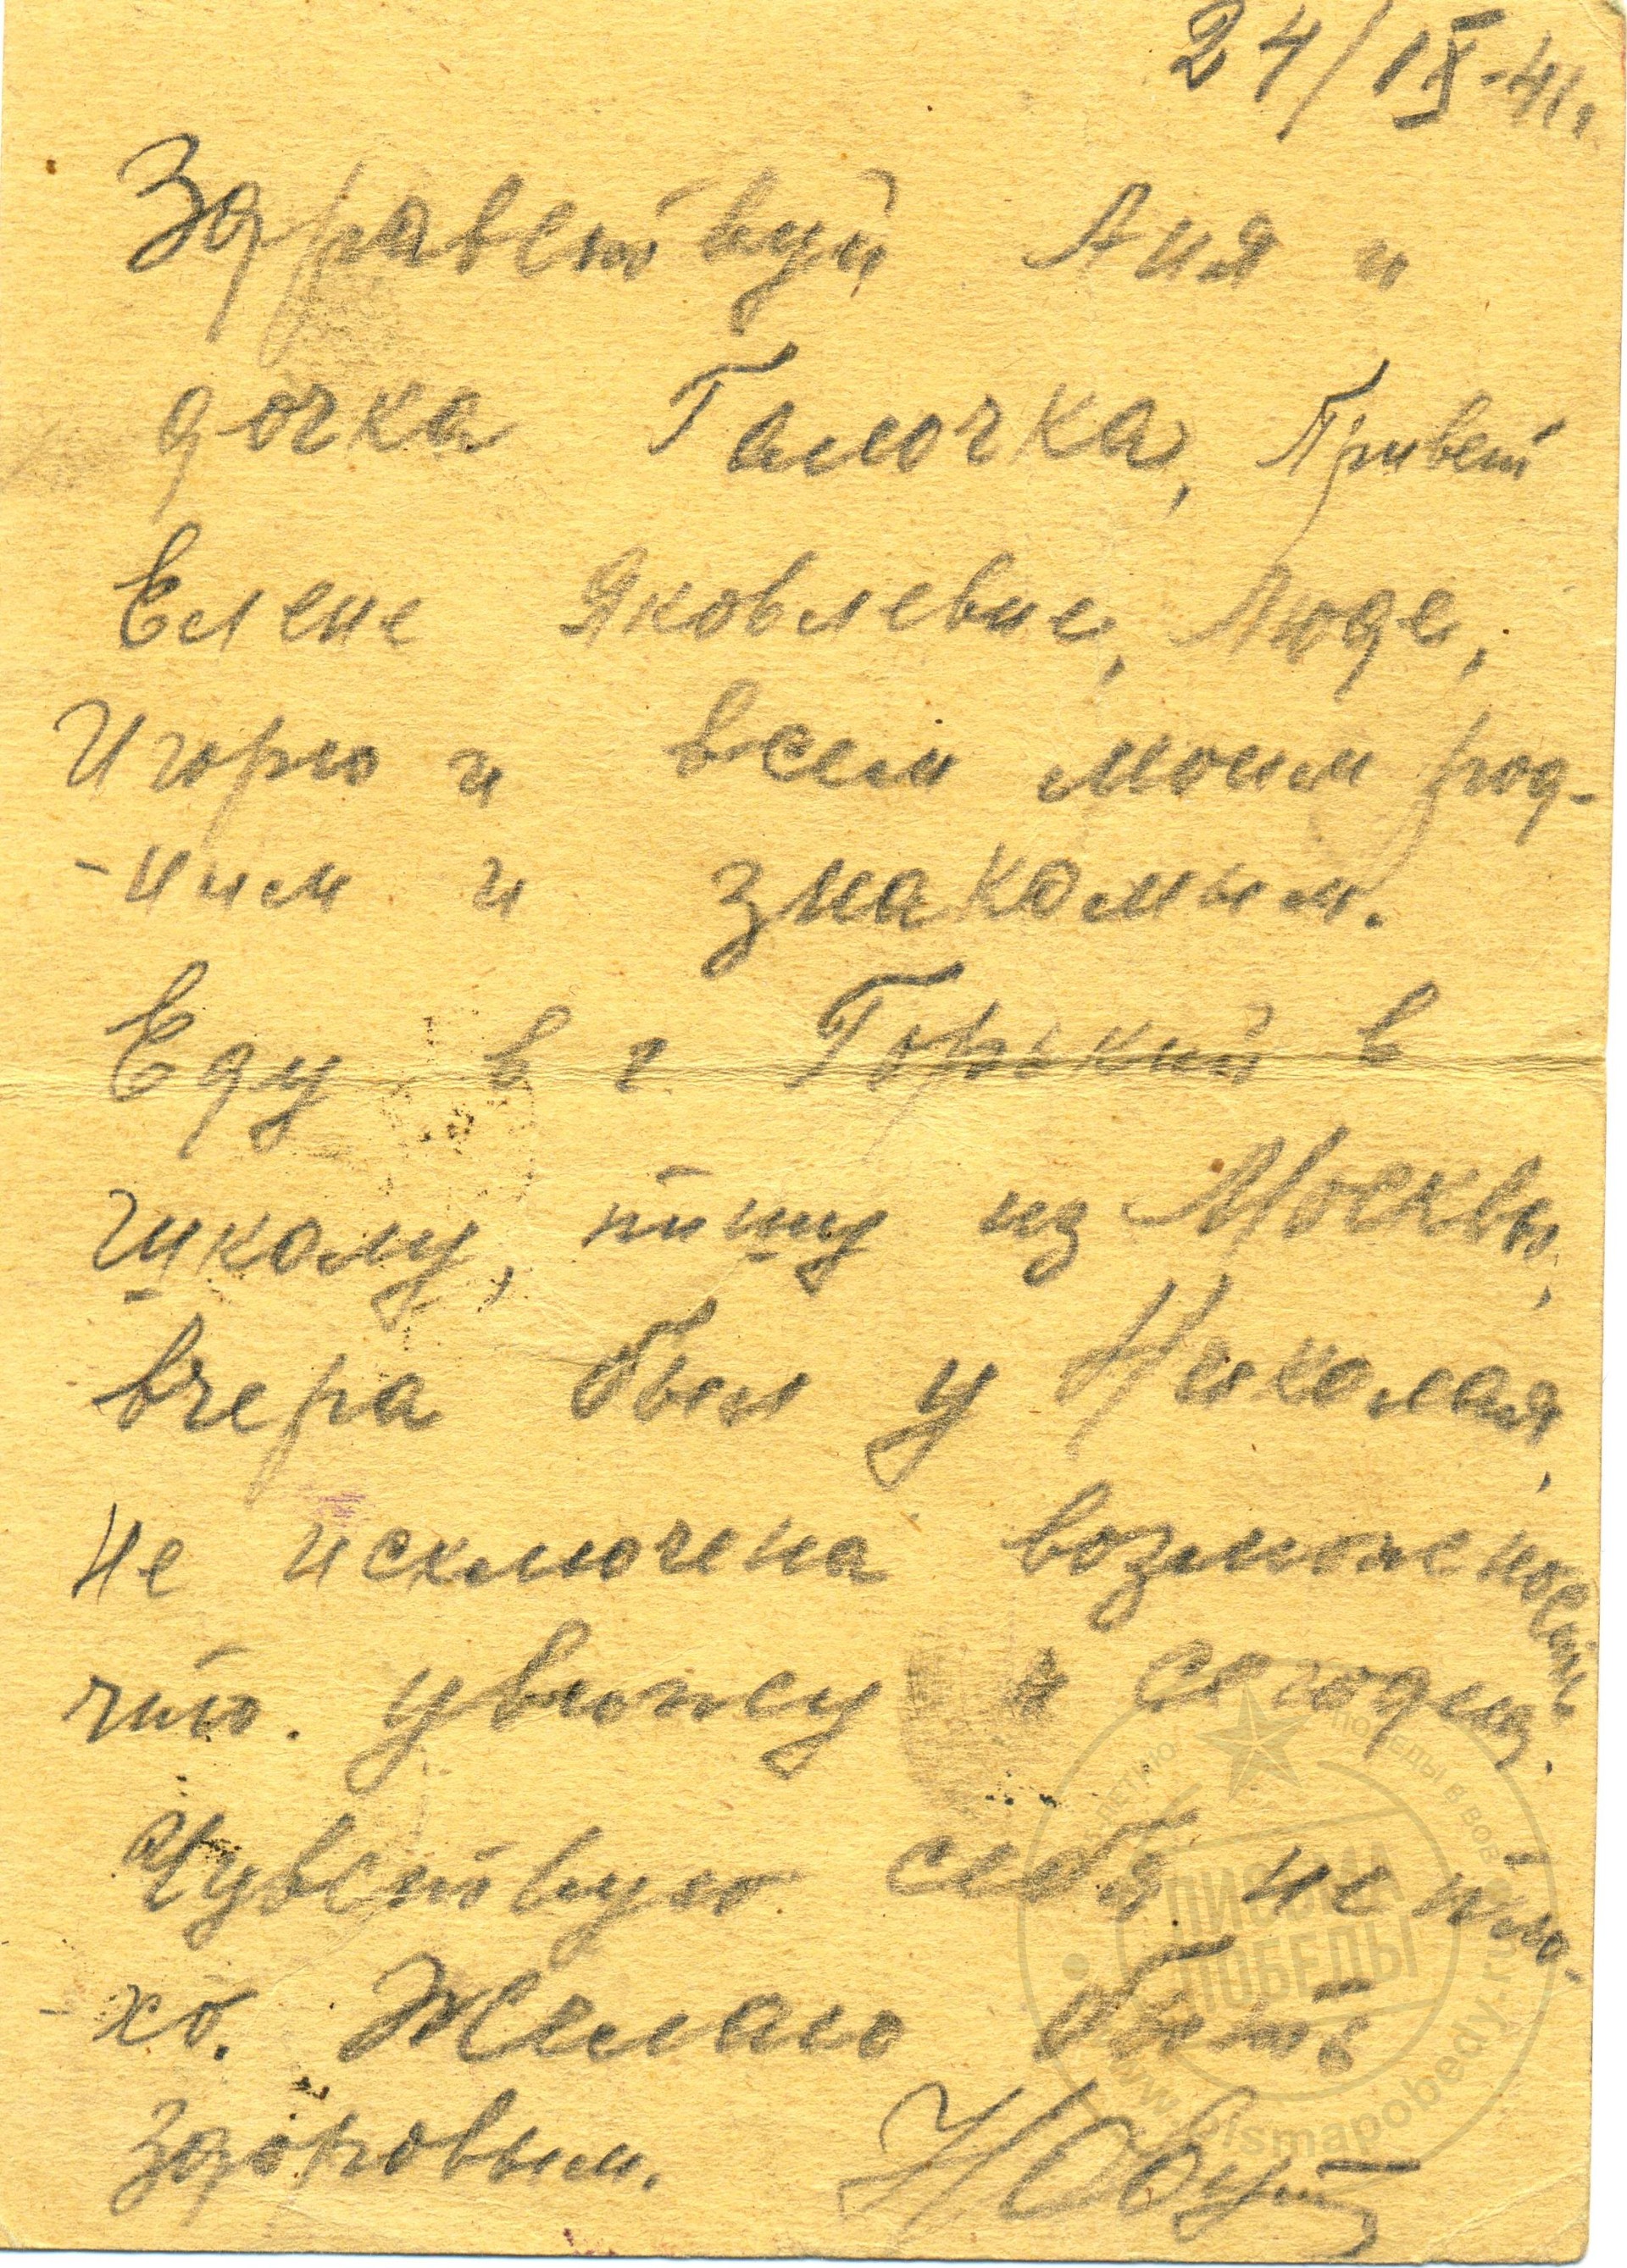 24/IX-41.
Здравствуй Аня и
дочка Галочка, Привет
Елене Яковлевне, Люде,
Игорю и всем моим род-
-ним и знакомым.
Еду в г Горький в
школу, пишу из Москвы,
вчера был у Николая,
не исключена возможность
что. увижу и сегодня.
Чувствую себя не пло-
-хо. Желаю быть
здоровым.
ПИСЬМА
ПОБЕДЫ
www.pismapobedy.ru